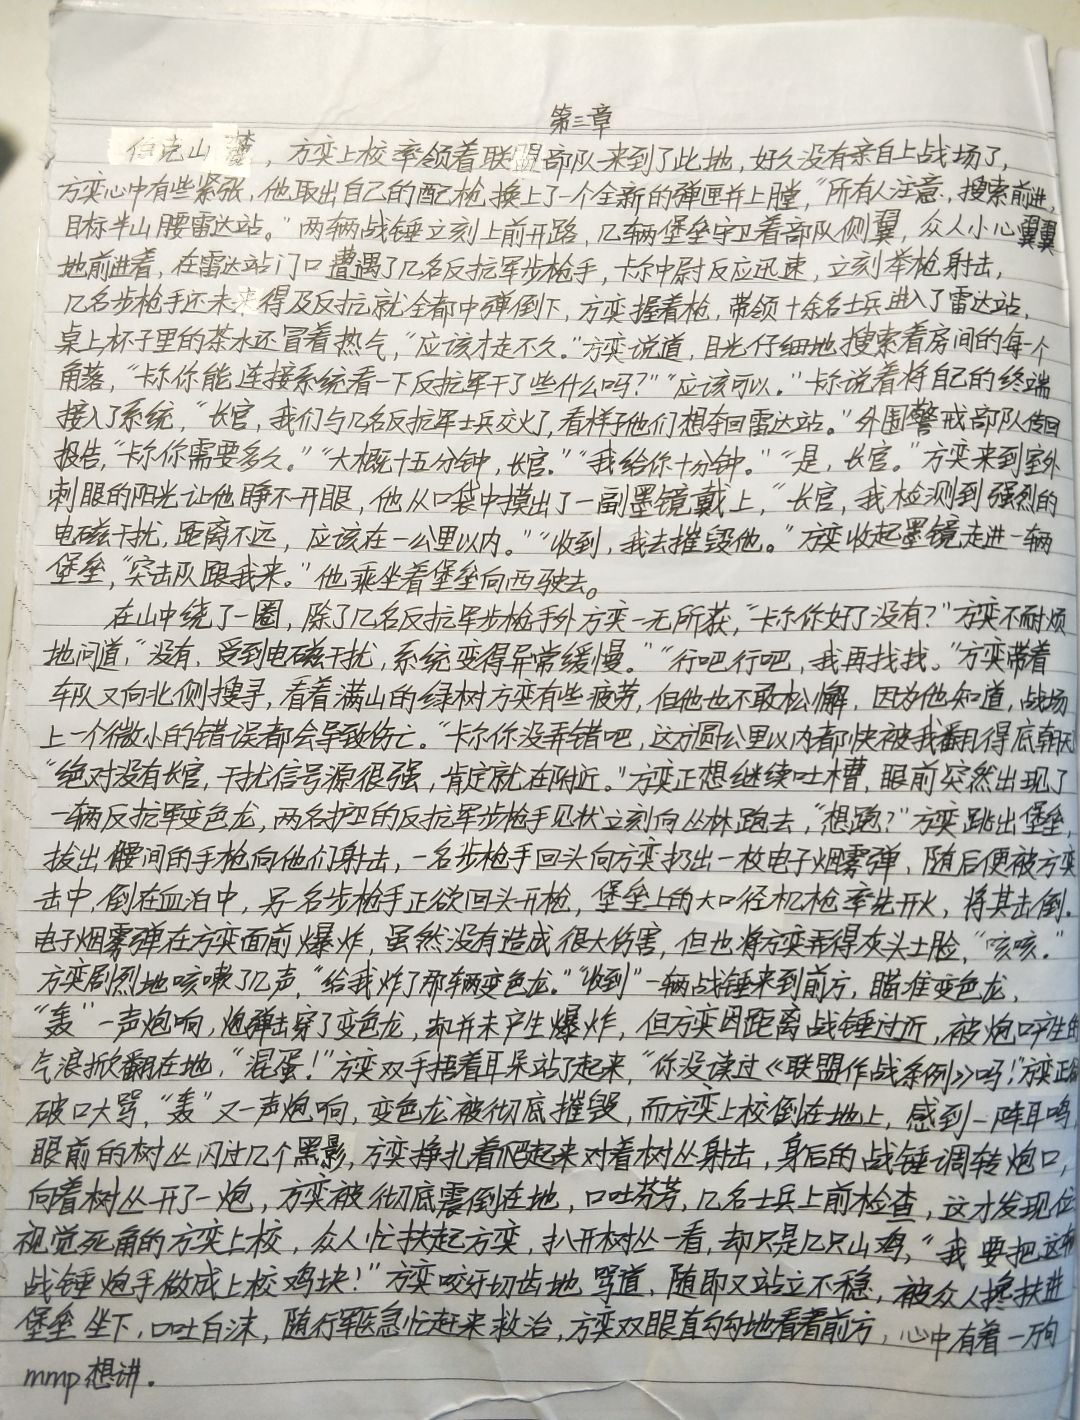 第三章
伯克山麓，方奕上校率领着联盟部队来到了此地，好久没有亲自上战场了，
方奕心中有些紧张，他取出自己的配枪换上了一个全新的弹匣并上膛，“所有人注意，搜索前进，
目标半山腰雷达站。”两辆战锤立刻上前开路，几辆堡垒守卫着部队侧翼，众人小心翼翼
地前进着，在雷达站门口遭遇了几名反抗军步枪手，卡尔中尉反应迅速，立刻举枪射击，
几名步枪手还未来得及反抗就全都中弹倒下，方奕握着枪，带领十余名士兵进入了雷达站，
桌上杯子里的茶水还冒着热气，“应该才走不久。”方奕说道，目光仔细地搜索着房间的每一个
角落，“卡尔你能连接系统看一下反抗军干了些什么吗？”“应该可以。”卡尔说着将自己的终端
接入了系统，“长官，我们与几名反抗军士兵交火了，看样子他们想夺回雷达站。”外围警戒部队传回
报告，“卡尔你需要多久。”“大概十五分钟，长官。”“我给你十分钟。”“是，长官。”方奕来到室外
刺眼的阳光让他睁不开眼，他从口袋中摸出了一副墨镜戴上，“长官，我检测到强烈的
电磁干扰，距离不远，应该在一公里以内。”“收到，我去摧毁他。”方奕收起墨镜走进一辆
堡垒，“突击队跟我来。”他乘坐着堡垒向西驶去。
在山中绕了一圈，除了几名反抗军步枪手外方奕一无所获，“卡尔你好了没有？”方奕不耐烦
地问道，“没有，受到电磁干扰，系统变得异常缓慢。”“行吧行吧，我再找找。”方奕带着
车队又向北侧搜寻，看着满山的绿树方奕有些疲劳，但他也不敢松懈，因为他知道，战场
上一个微小的错误都会导致伤亡。“卡尔你没弄错吧，这方圆公里以内都快被我翻得底朝天
“绝对没有长官，干扰信号源很强，肯定就在附近。”方奕正想继续吐槽，眼前突然出现了
一辆反抗军变色龙，两名护卫的反抗军步枪手见状立刻向丛林跑去，“想跑？”方奕跳出堡垒，
拔出腰间的手枪向他们射击，一名步枪手回头向方奕扔出一枚电子烟雾弹，随后便被方奕
击中，倒在血泊中，另一名步枪手正欲回头开枪，堡垒上的大口径机枪率先开火，将其击倒。
电子烟雾弹在方奕面前爆炸，虽然没有造成很大伤害，但也将方奕弄得灰头土脸，“咳咳。”
方奕剧烈地咳嗽了几声，“给我炸了那辆变色龙。”“收到”一辆战锤来到前方，瞄准变色龙，
“轰”一声炮响，炮弹击穿了变色龙，却并未产生爆炸，但方奕因距离战锤过近，被炮口产生的
气浪掀翻在地，“混蛋！”方奕双手捂着耳朵站了起来，“你没读过《联盟作战条例》吗！”方奕正欲
破口大骂，“轰”又一声炮响，变色龙被彻底摧毁，而方奕上校倒在地上，感到一阵耳鸣，
眼前的树丛闪过几个黑影，方奕挣扎着爬起来对着树丛射击，身后的战锤调转炮口，
向着树丛开了一炮，方奕被彻底震倒在地，口吐芬芳，几名士兵上前检查，这才发现位
视觉死角的方奕上校，众人忙扶起方奕，扒开树丛一看，却只是几只山鸡，“我要把这
战锤炮手做成上校鸡块！”方奕咬牙切齿地骂道，随即又站立不稳，被众人搀扶进
堡垒坐下，口吐白沫，随行军医急忙赶来救治，方奕双眼直勾勾地看着前方，心中有着一万句
mmp想讲。